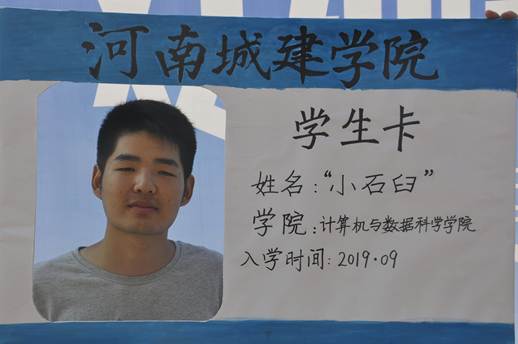 河南城建学院
学生卡
姓名：“小石臼”
学院：计算机与数据科学学院
入学时间：2019.09